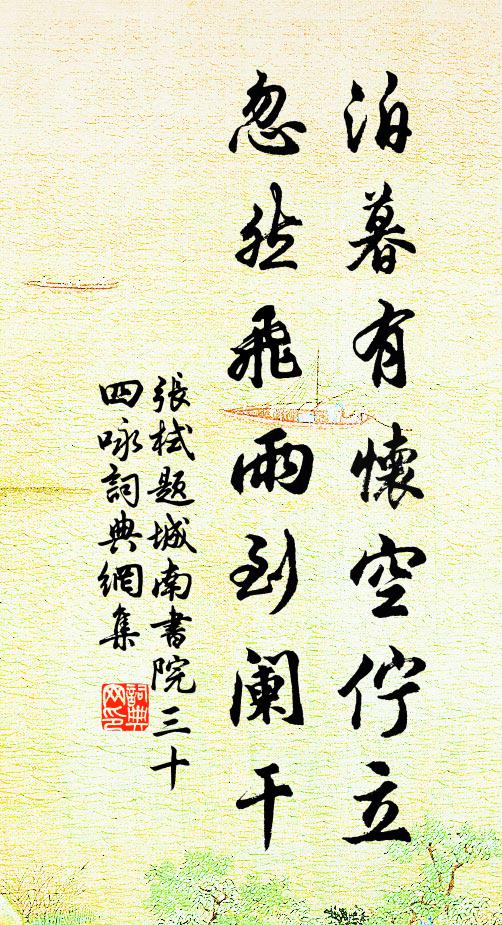 泊暮有懷空佇立
忽然飛雨到闌干
張栻題城南書院三十
四咏詞典網集
詞典网印